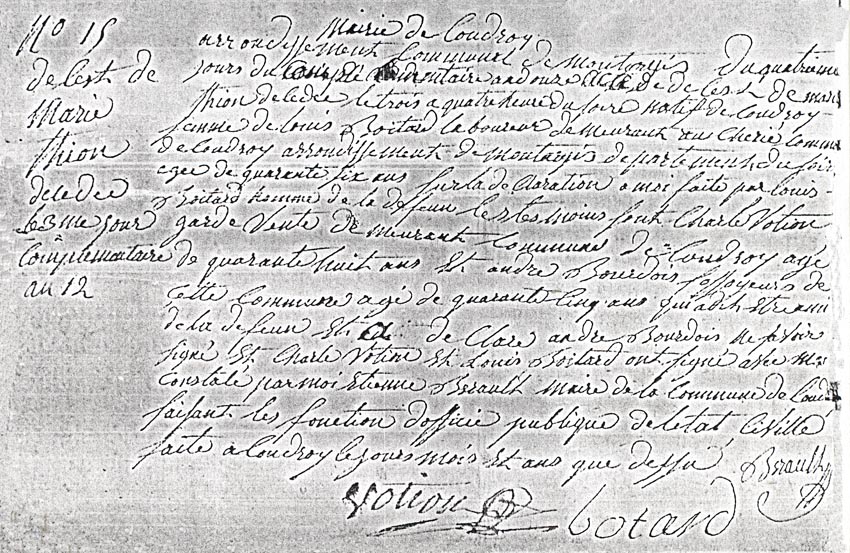 No 15
de cest de
Marie
thion
deledée
le 3me jour
Complementaire
an 12
Mairie de Coudroy
arrondissement Communal de montargis Du quatrieme
jours du Complementaire an douze acte de desest de marie
thion deledée le trois a quatre heure du soire natif de Coudroy
femme de louis Boitard laboureur demeurant aux Commu
de Coudroy arrondissement de montargis departement du Loir
agée de quarante six ans sur la declaration a moi faite par louis
Boitard homme de la defeun les tesmoins sont Charle Votion
garde vente demeurant Commune de Coudroy agé
de quarante huit ans Et andre Bourdois fossoyeurs de
Cette Commune agé de quarante Cinq ans qui a dit Etre ami
de la defeun Et a de Claré andre Bourdois ne savoir
signé Et Charle Votion Et Louis Boitard ont signé avec moi
Constaté par moi Etienne Berault maire de la Commune de Coud
faisant les fonction d'officié publique de letat Civille
faite a Coudroy le jours mois Et ans que dessu
Berault
votion
botard